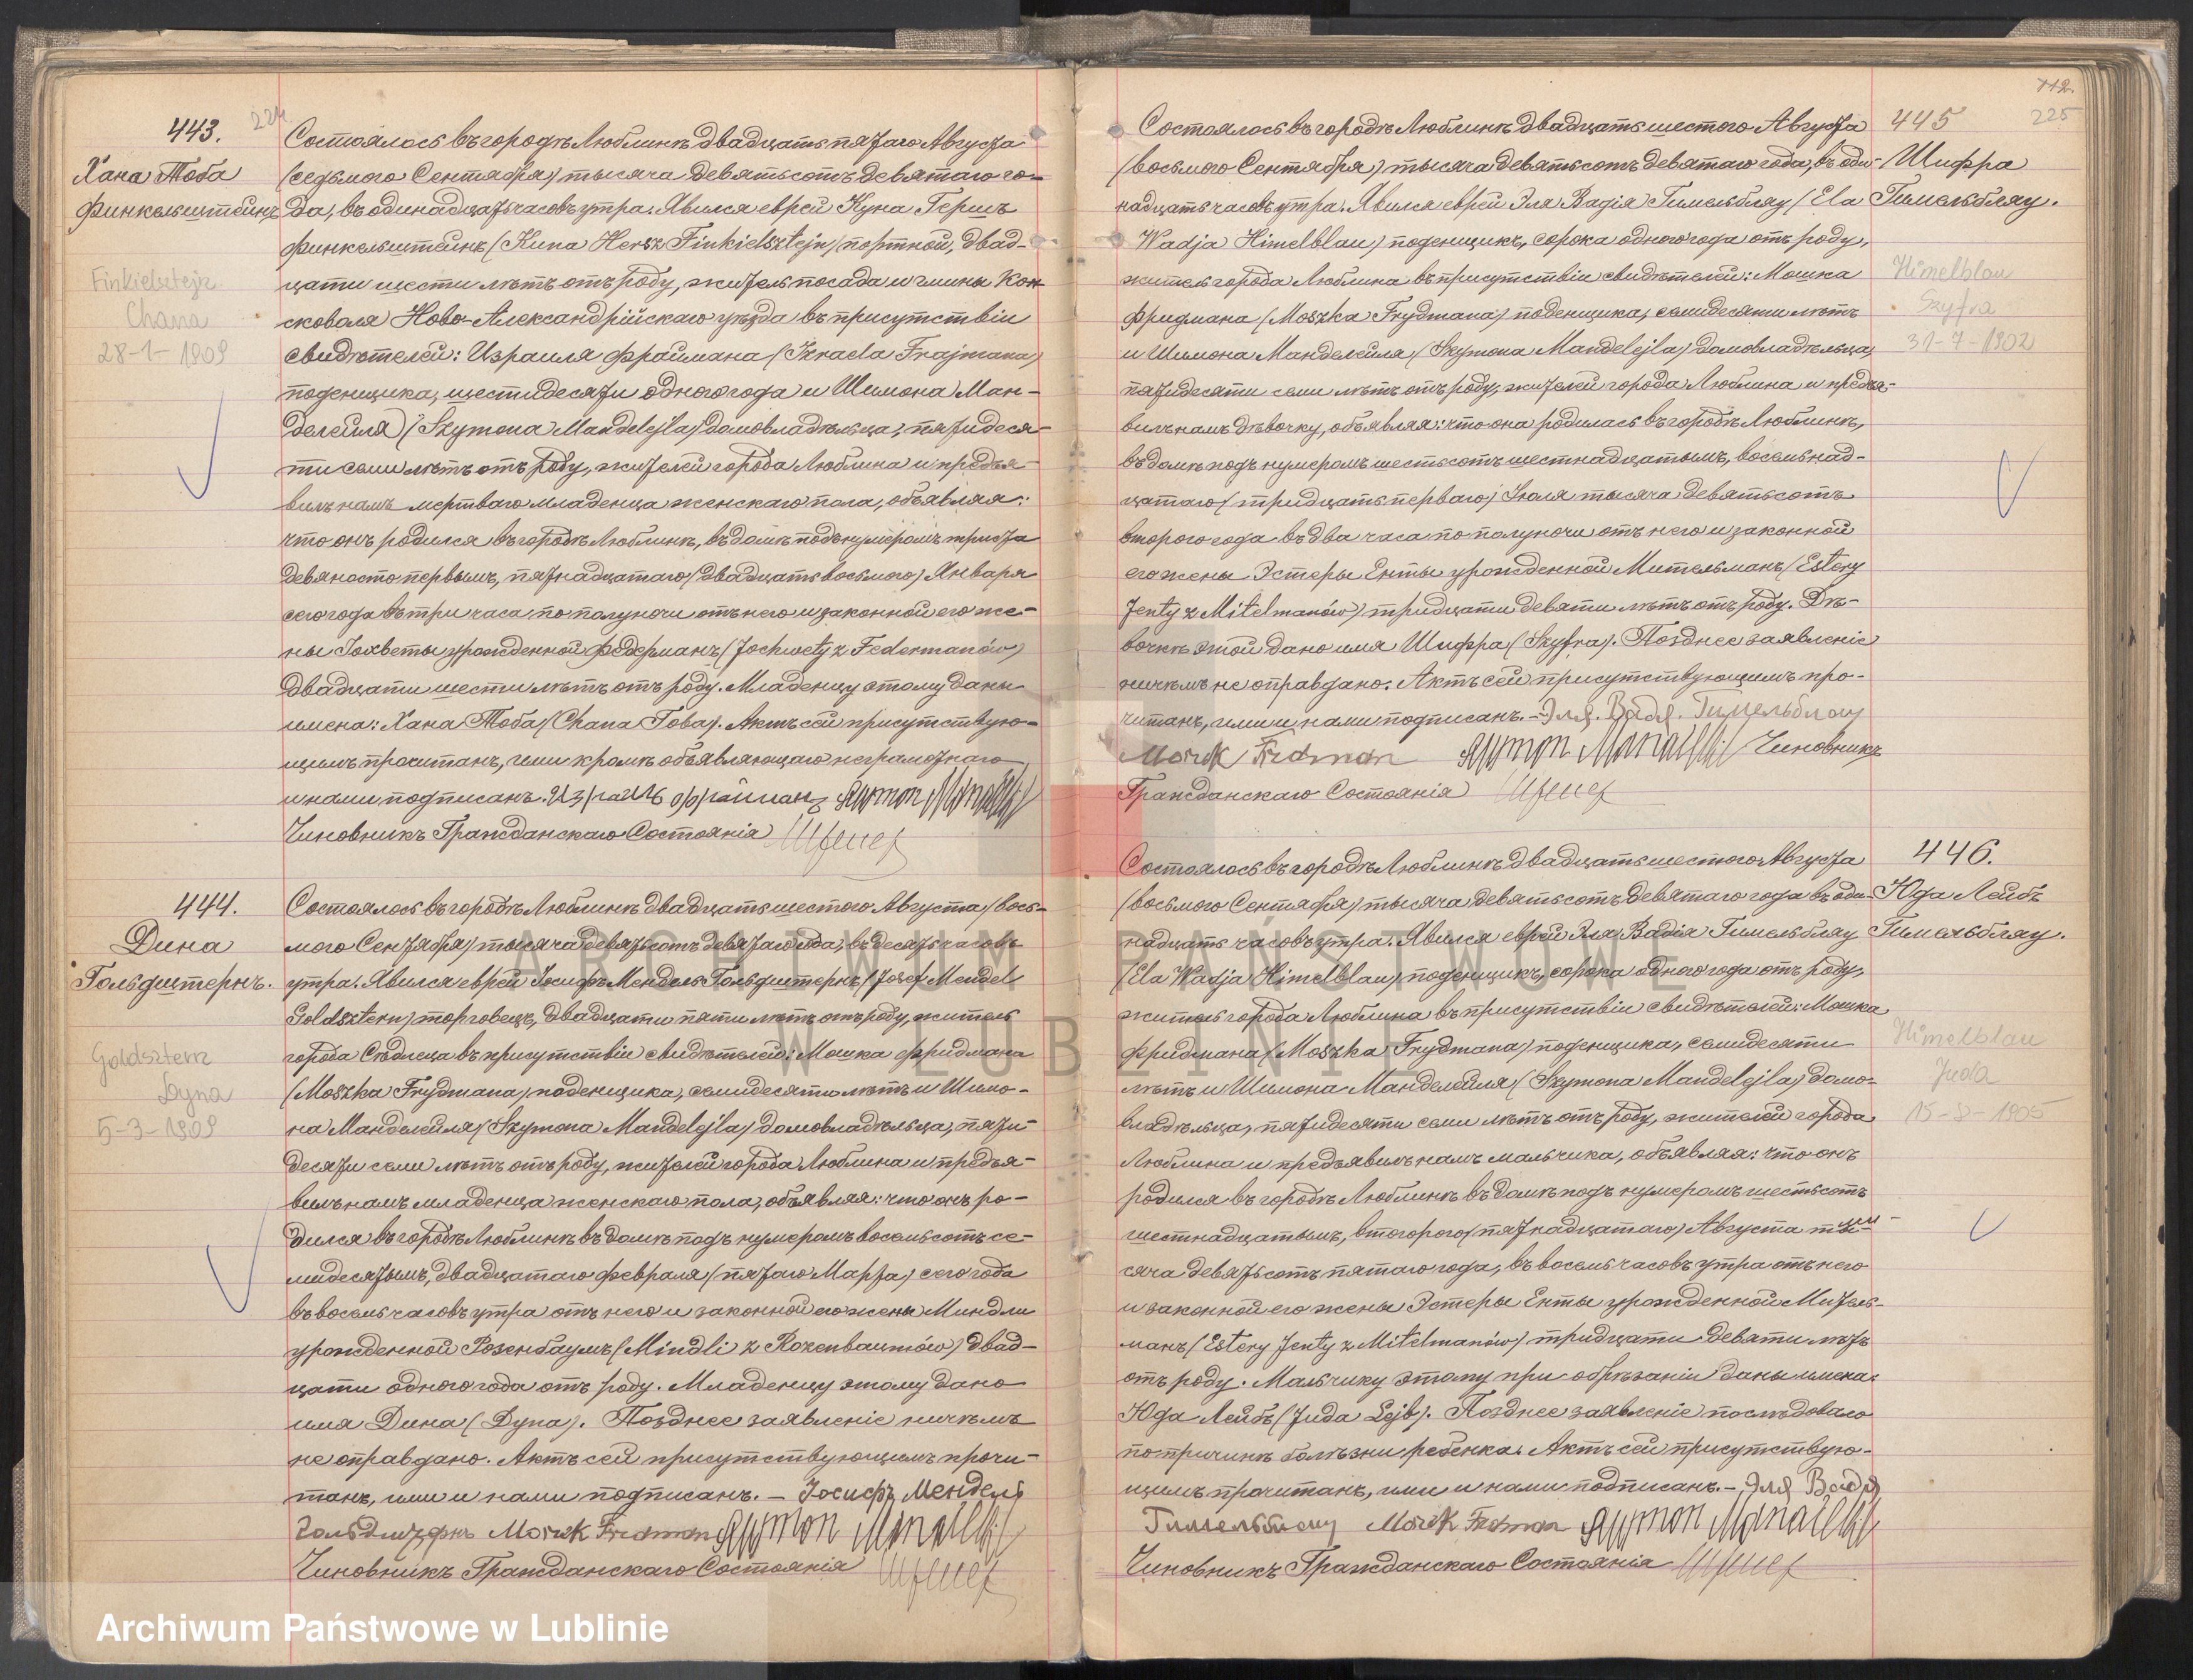 443.
224
Хана Тоба
Финкельштейнъ
Finkielsztejn
Chana
28-1-1909
Состоялось въ городѣ Люблинѣ двадцать пятаго Августа
(седьмого Сентября) тысяча девятьсотъ девятаго го-
да, въ одинадцать часовъ утра. Явился еврей Куна Гершъ
Финкельштейнъ (Kuna Hersz Finkielsztejn) портной, двад-
цати шести лѣтъ отъ роду, житель посада и гмины Кон-
сковоля Ново-Александрійскаго уѣзда въ присутствіи
свидѣтелей: Израиля Фраймана (Izraela Frajmana)
поденщика, шестидесяти одного года и Шимона Ман-
делейля (Szymona Mandelejla) домовладѣльца, пятидеся-
ти семи лѣтъ отъ роду, жителей города Люблина и предъя-
вилъ намъ мертваго младенца женскаго пола, объявляя:
что онъ родился въ городѣ Люблинѣ, въ домѣ подъ нумеромъ триста
девяносто первымъ, пятнадцатаго (двадцать восьмого) Января
сего года въ три часа по полуночи отъ него и законной его же-
ны Іохветы урожденной Федерманъ (Jochwety z Federmanów)
двадцати шести лѣтъ отъ роду. Младенцу этому даны
имена: Хана Тоба (Chana Toba). Актъ сей присутствую-
щимъ прочитанъ, ими кромѣ объявляющаго неграмотнаго
и нами подписанъ. Израиль Фрайманъ Szymon Mandelejl
Чиновникъ Гражданскаго Состоянія
444.
Дина
Гольдштернъ.
Goldsztern
Dyna
5-3-1909
Состоялось въ городѣ Люблинѣ двадцать шестого Августа (вось-
мого Сентября) тысяча девятьсотъ девятаго года, въ десять часовъ
утра. Явился еврей Іосифъ Мендель Гольдштернъ (Josef Mendel
Goldsztern) торговецъ, двадцати пяти лѣтъ отъ роду, житель
города Сѣдлеца въ присутствіи свидѣтелей: Мошка Фридмана
(Moszka Frydmana) поденщика, семидесяти лѣтъ и Шимо-
на Манделейля (Szymona Mandelejla) домовладѣльца, пяти-
десяти семи лѣтъ отъ роду, жителей города Люблина и предъя-
вилъ намъ младенца женскаго пола, объявляя: что онъ ро-
дился въ городѣ Люблинѣ въ домѣ подъ нумеромъ восемьсотъ се-
мидесятымъ, двадцатаго Февраля (пятаго Марта) сего года
въ восемь часовъ утра отъ него и законной его жены Миндли
урожденной Розенбаумъ (Mindli z Rozenbaumów) двад-
цати одного года отъ роду. Младенцу этому дано
имя Дина (Dyna). Позднее заявленіе ничѣмъ
не оправдано. Актъ сей присутствующимъ прочи-
танъ, ими и нами подписанъ. – Іосифъ Мендель
Гольдштернъ Moszek Fridman Szymon Mandelejl
Чиновникъ Гражданскаго Состоянія
112.
225
445
Шифра
Гимельблау.
Himelblau
Szyfra
31-7-1902
Состоялось въ городѣ Люблинѣ двадцать шестого Августа
(восьмого Сентября) тысяча девятьсотъ девятаго года, въ оди-
надцать часовъ утра. Явился еврей Эля Вадія Гимельблау (Ela
Wadja Himelblau) поденщикъ, сорока одного года отъ роду,
житель города Люблина въ присутствіи свидѣтелей: Мошка
Фридмана (Moszka Frydmana) поденщика, семидесяти лѣтъ
и Шимона Манделейля (Szymona Mandelejla) домовладѣльца,
пятидесяти семи лѣтъ отъ роду, жителей города Люблина и предъя-
вилъ намъ дѣвочку, объявляя: что она родилась въ городѣ Люблинѣ,
въ домѣ подъ нумеромъ шестьсотъ шестнадцатымъ, восемьнад-
цатаго (тридцать перваго) Іюля тысяча девятьсотъ
второго года въ два часа по полуночи отъ него и законной
его жены Эстеры Енты урожденной Мительманъ (Estery
Jenty z Mitelmanów) тридцати девяти лѣтъ отъ роду. Дѣ-
вочкѣ этой дано имя Шифра (Szyfra). Позднее заявленіе
ничѣмъ не оправдано. Актъ сей присутствующимъ про-
читанъ, ими и нами подписанъ. – Эля. Вадя. Гимельблау
Moszek Fridman Szymon Mandelejl Чиновникъ
Гражданскаго Состоянія
446.
Юда Лейбъ
Гимельблау.
Himelblau
Juda
15-8-1905
Состоялось въ городѣ Люблинѣ двадцать шестого Августа
(восьмого Сентября) тысяча девятьсотъ девятаго года въ оди-
надцать часовъ утра. Явился еврей Эля Вадія Гимельблау
(Ela Wadja Himelblau) поденщикъ, сорока одного года отъ роду,
житель города Люблина въ присутствіи свидѣтелей: Мошка
Фридмана (Moszka Frydmana) поденщика, семидесяти
лѣтъ и Шимона Манделейля (Szymona Mandelejla) домо-
владѣльца, пятидесяти семи лѣтъ отъ роду, жителей города
Люблина и предъявилъ намъ мальчика, объявляя: что онъ
родился въ городѣ Люблинѣ въ домѣ подъ нумеромъ шестьсотъ
шестнадцатымъ, второго (пятнадцатаго) Августа ты-
сяча девятьсотъ пятаго года, въ восемь часовъ утра отъ него
и законной его жены Эстеры Енты урожденной Митель-
манъ (Estery Jenty z Mitelmanów) тридцати девяти лѣтъ
отъ роду. Мальчику этому при обрѣзаніи даны имена:
Юда Лейбъ (Juda Lejb). Позднее заявленіе послѣдовало
по причинѣ болѣзни ребенка. Актъ сей присутствую-
щимъ прочитанъ, ими и нами подписанъ. – Эля Вадя
Гимельблау Moszek Fridman Szymon Mandelejl
Чиновникъ Гражданскаго Состоянія
ARCHIWUM PAŃSTWOWE
W LUBLINIE
Archiwum Państwowe w Lublinie